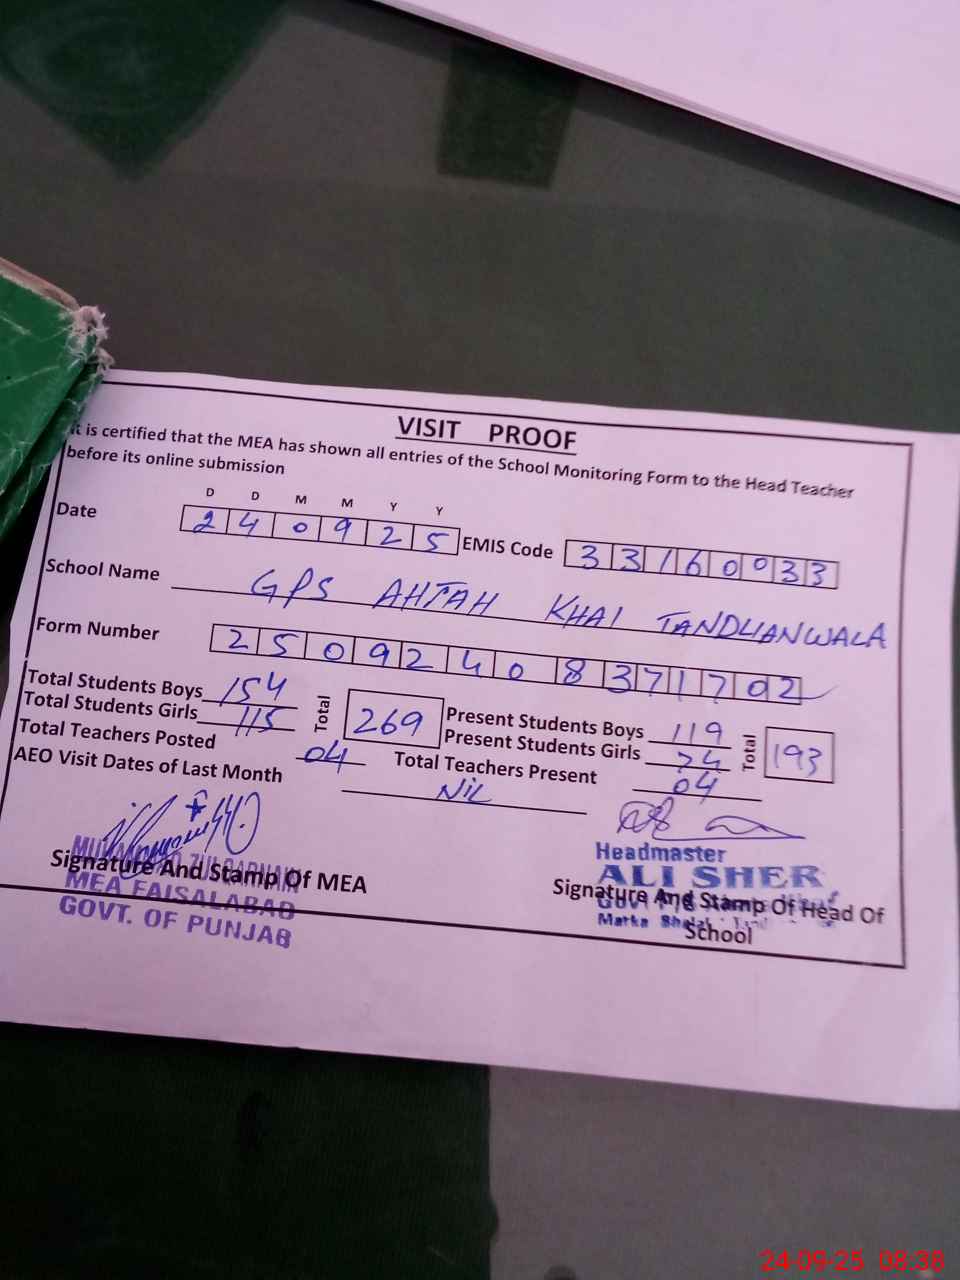 VISIT PROOF
It is certified that the MEA has shown all entries of the School Monitoring Form to the Head Teacher
before its online submission
D D M M Y Y
Date 2 4 0 9 2 5 EMIS Code 3 3 1 6 0 0 3 3
School Name GPS AHTAH KHAI TANDLIANWALA
Form Number 2 5 0 9 2 4 0 8 3 7 1 7 0 2
Total Students Boys 154 Total 269 Present Students Boys 119 Total 193
Total Students Girls 115 Present Students Girls 74
Total Teachers Posted 04 Total Teachers Present 04
AEO Visit Dates of Last Month NIL
Signature And Stamp Of MEA
MEA FAISALABAD
GOVT. OF PUNJAB
Headmaster
ALI SHER
Signature And Stamp Of Head Of
School
24-09-25 08:38